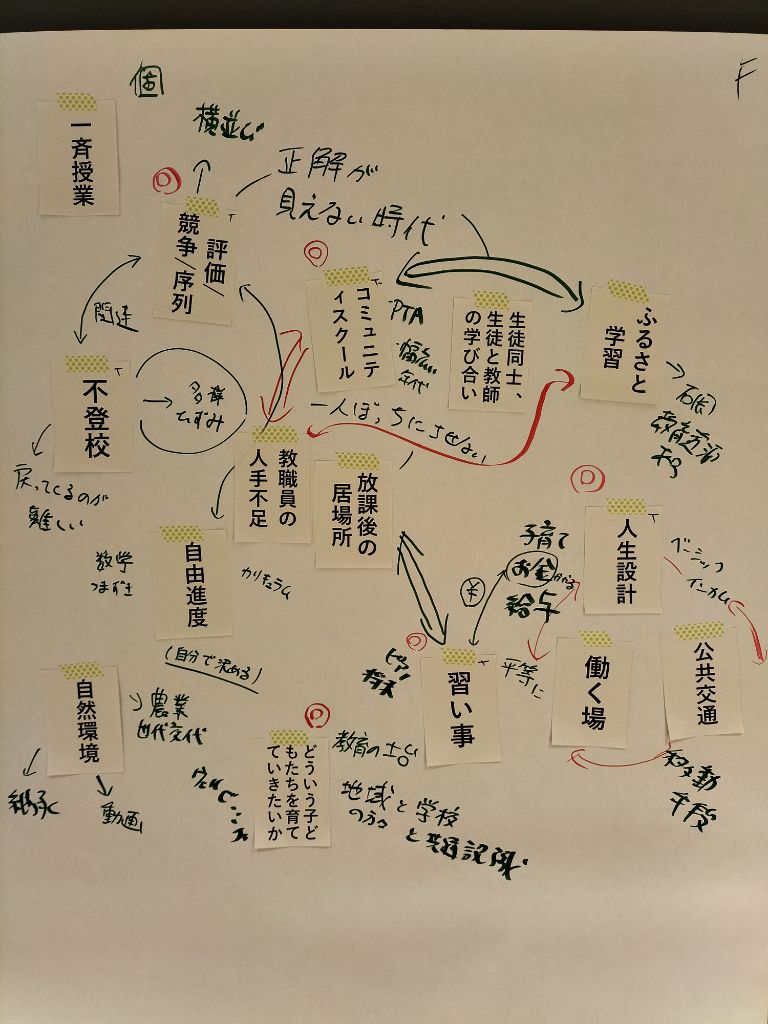 個
F
一斉授業
横並び
正解が
見えない時代
評価/
競争/序列
関連
コミュニテ
ィスクール
PTA
幅広い
年代
生徒同士、
生徒と教師
の学び合い
ふるさと
学習
不登校
多様
ひずみ
一人ぼっちにさせない
戻ってくるのが
難しい
教職員の
人手不足
放課後の
居場所
人生設計
子育て
お金かかる
給与
ベーシック
インカム
数学
つまずき
自由進度
カリキュラム
(自分で決める)
¥
ピアノ
習い事
平等に
働く場
公共交通
移動
手段
自然環境
農業
世代交代
継承
動画
どういう子ど
もたちを育て
ていきたいか
教育の土台
地域と学校